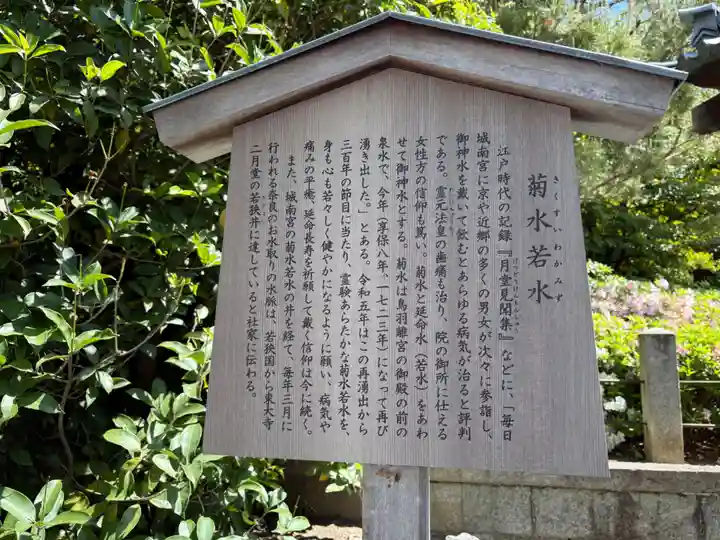 菊水若水
きくすいわかみず
江戸時代の記録『月堂見聞集』などに、「毎日
げつどうけんもんしゅう
城南宮に京や近郷の多くの男女が次々に参詣し、
御神水を戴いて飲むとあらゆる病気が治ると評判
である。霊元法皇の歯痛も治り、院の御所に仕える
女性方の信仰も篤い。菊水と延命水（若水）をあわ
せて御神水とする。菊水は鳥羽離宮の御殿の前の
泉水で、今年（享保八年、一七二三年）になって再び
湧き出した。」とある。令和五年はこの再湧出から
三百年の節目に当たり、霊験あらたかな菊水若水を、
身も心も若々しく健やかになるように願い、病気や
痛みの平癒、延命長寿を祈願して戴く信仰は今に続く。
また、城南宮の菊水若水の井を経て、毎年三月に
行われる奈良のお水取りの水脈は、若狭国から東大寺
二月堂の若狭井に達していると社家に伝わる。